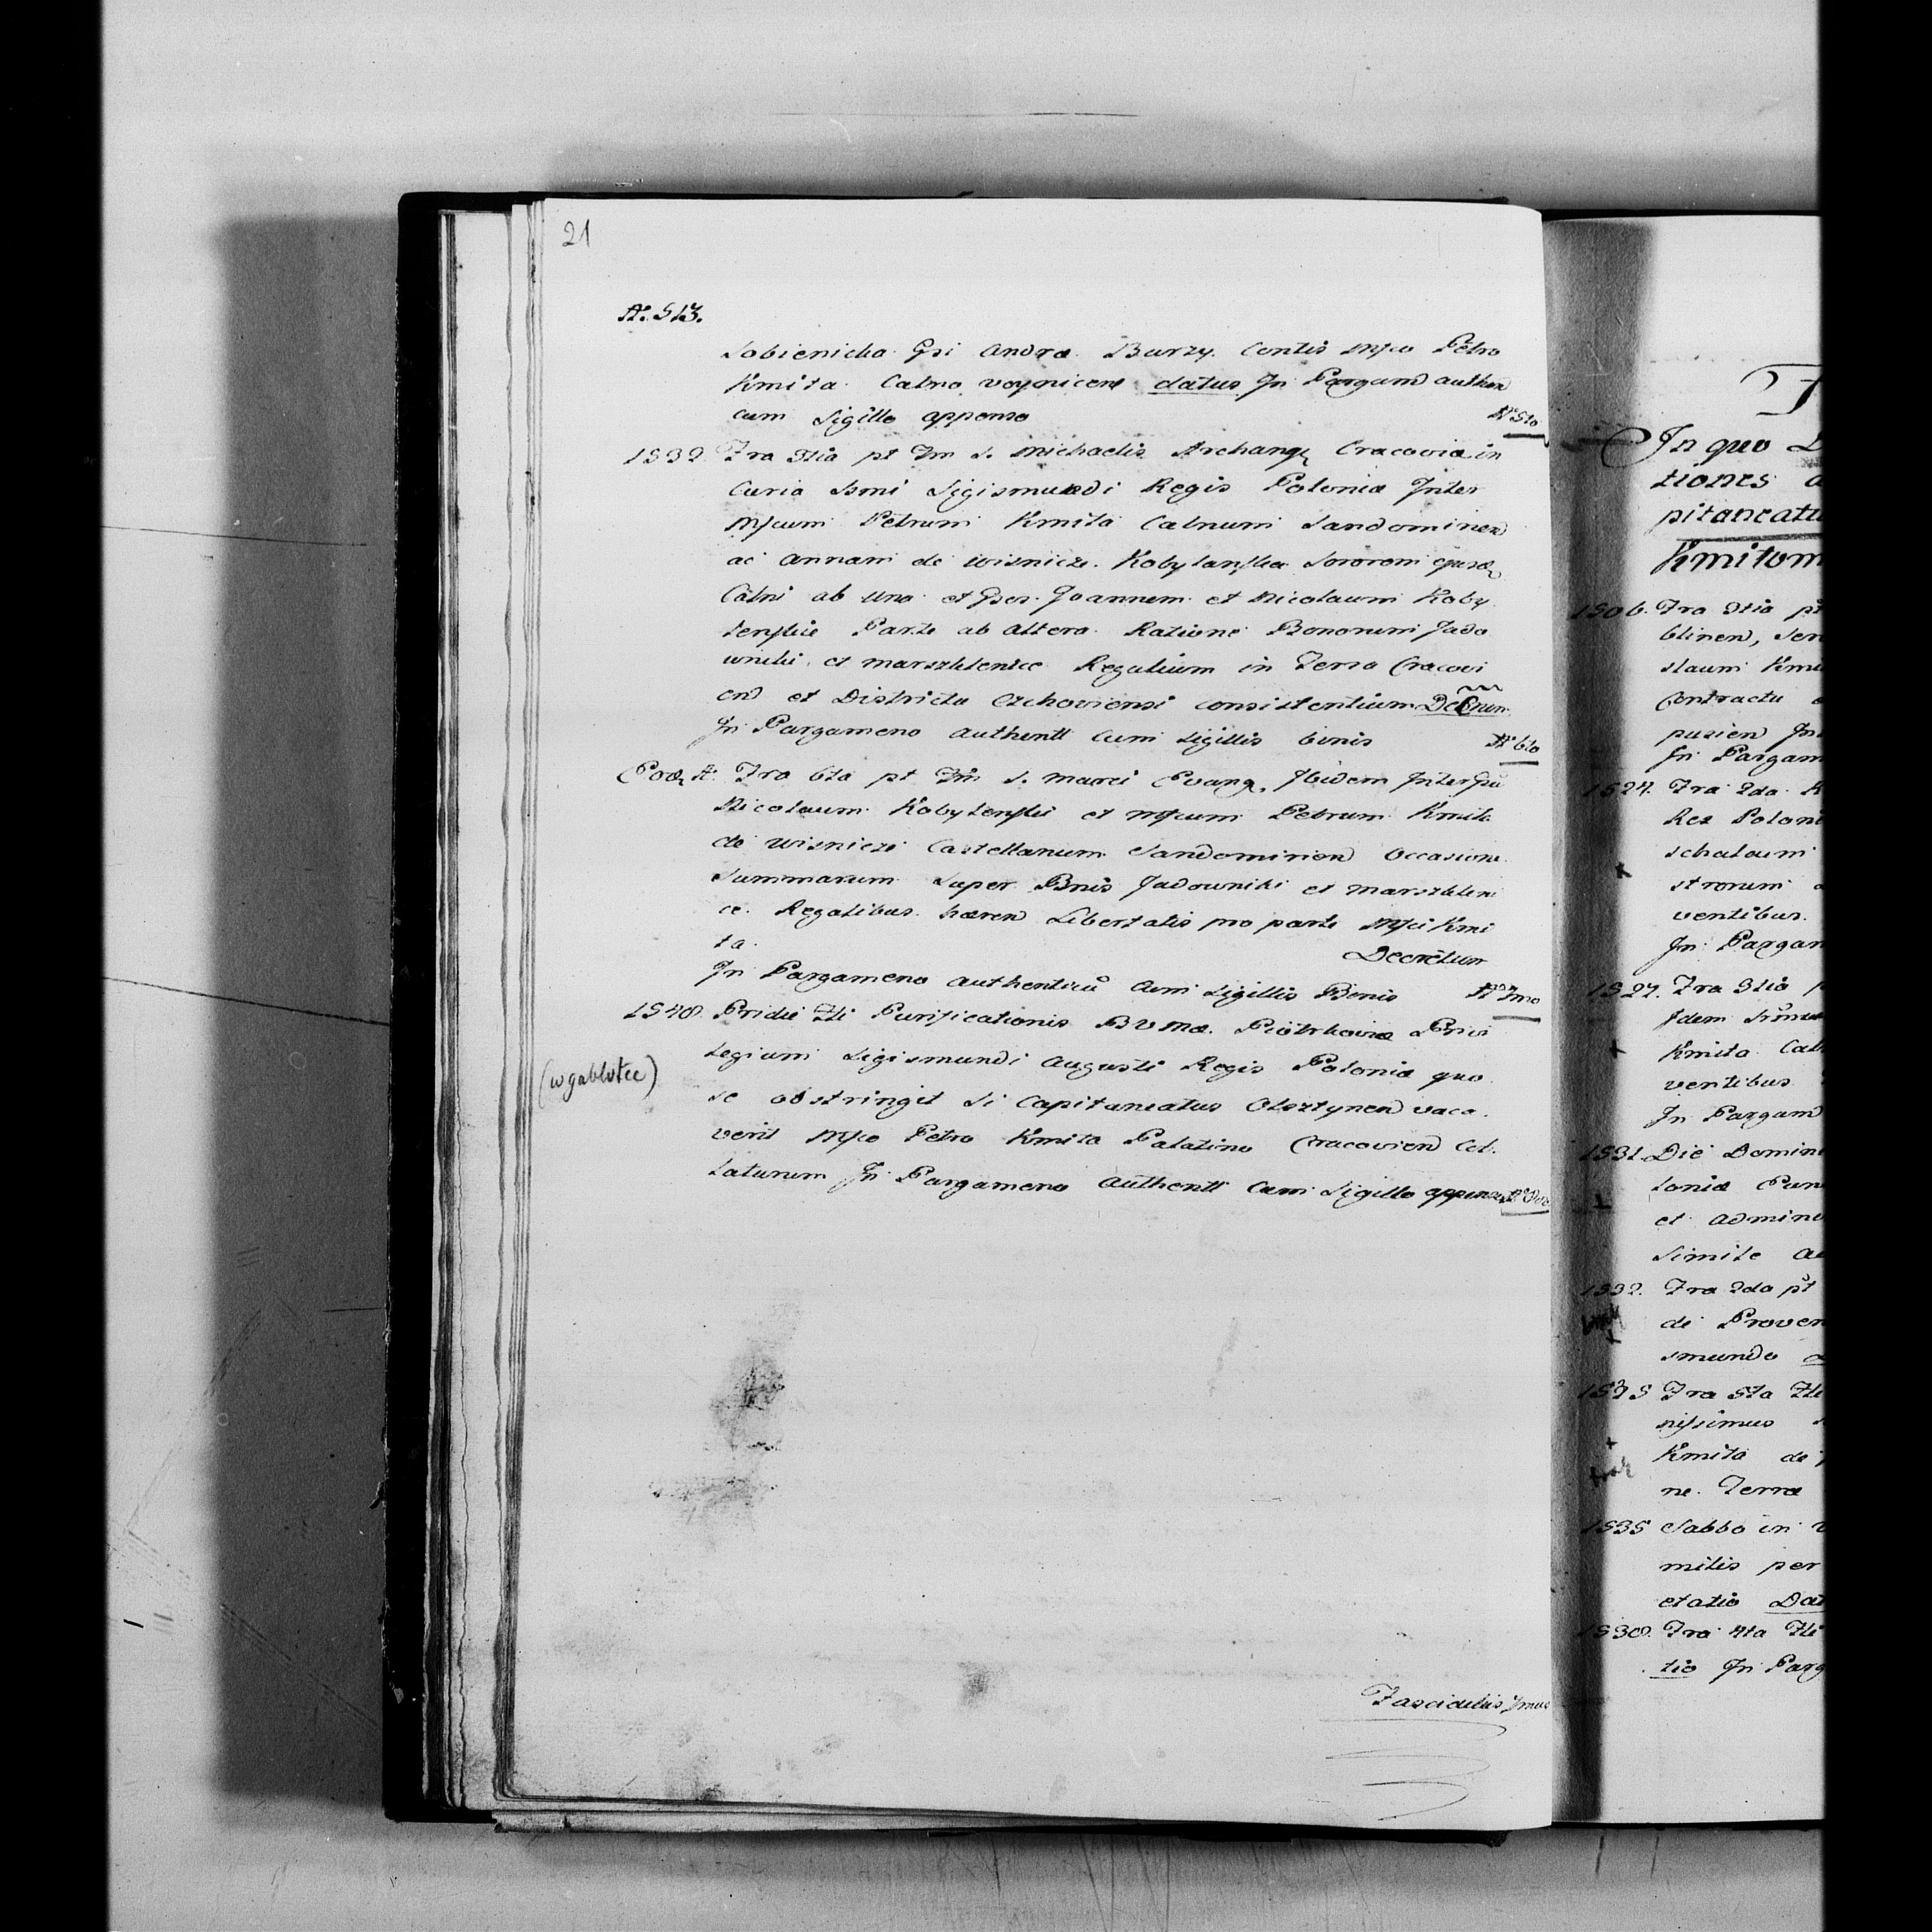 21
A: 513.
Sobienicha Gsi Andræ Burzy. Contis Mfco Petro
Kmita Calno voynicens datus Jn Pargam authen
cum Sigillo appenso No 5to
1532 Fra 3tia pt Fm S. Michaelis Archang. Cracoviæ in
Curia Ssmi Sigismundi Regis Poloniæ Inter
Mfcum Petrum Kmita Calnum Sandominen
ac Annam de Wisnicze. Kobylanska Sororem ejusd
Calni ab una et Gsos. Joannem et Nicolaum Koby
lenskie Parte ab altera. Ratione Bonorum Jado
wniki, et Marszhlenice Regalium in Terra Cracovi
en et Districtu Czchoviensi consistentium Decrum
Jn Pargameno authentt cum Sigillis binis No 6to
Eod. A. Fra 6ta pt Fm S. Marci Evang. Ibidem Inter Gsu
Nicolaum Kobylenski et Mfcum Petrum Kmita
de Wisnicze Castellanum Sandomirien Occasione
Summarum super Bnis Jadowniki et Marszhleni
ce. Regalibus hæren Libertatis pro parte Mfci Kmi
ta. Decretum
Jn Pargameno authenticu cum Sigillis Benis No 7mo
1548. Pridie Fti Purificationis B V Mæ. Piotrkoviæ Privi
(w gablotce)
legium Sigismundi Augusti Regis Poloniæ quo
se obstringit si Capitaneatus Olsztynen vaca
verit Mfco Petro Kmita Palatino Cracovien Col
laturum Jn Pargameno authentt cum Sigillo appenso
Fasciculus 7mus
Jn quo
tiones
pitaneatu
Kmitom
1506. Fra 3tia pt
blinen, Ser
slaum Kmi
Contractu
pusien Jn
Jn Pargam
1524. Fra 2da
Rex Poloni
schalcum
strorum
ventibus.
Jn Pargam
1527. Fra 3tia
Jdem
Kmita Cal
ventibus
Jn Pargam
1531. Die Domini
loniæ
et admini
Simile
1532. Fra 2da pt
de Proven
smundo
1535 Fra 5ta Fti
nissimus
Kmita de
ne. Terræ
1535 Sabbo in
mitis per
etatis
1538. Fra 4ta Fti
tio Jn Parg